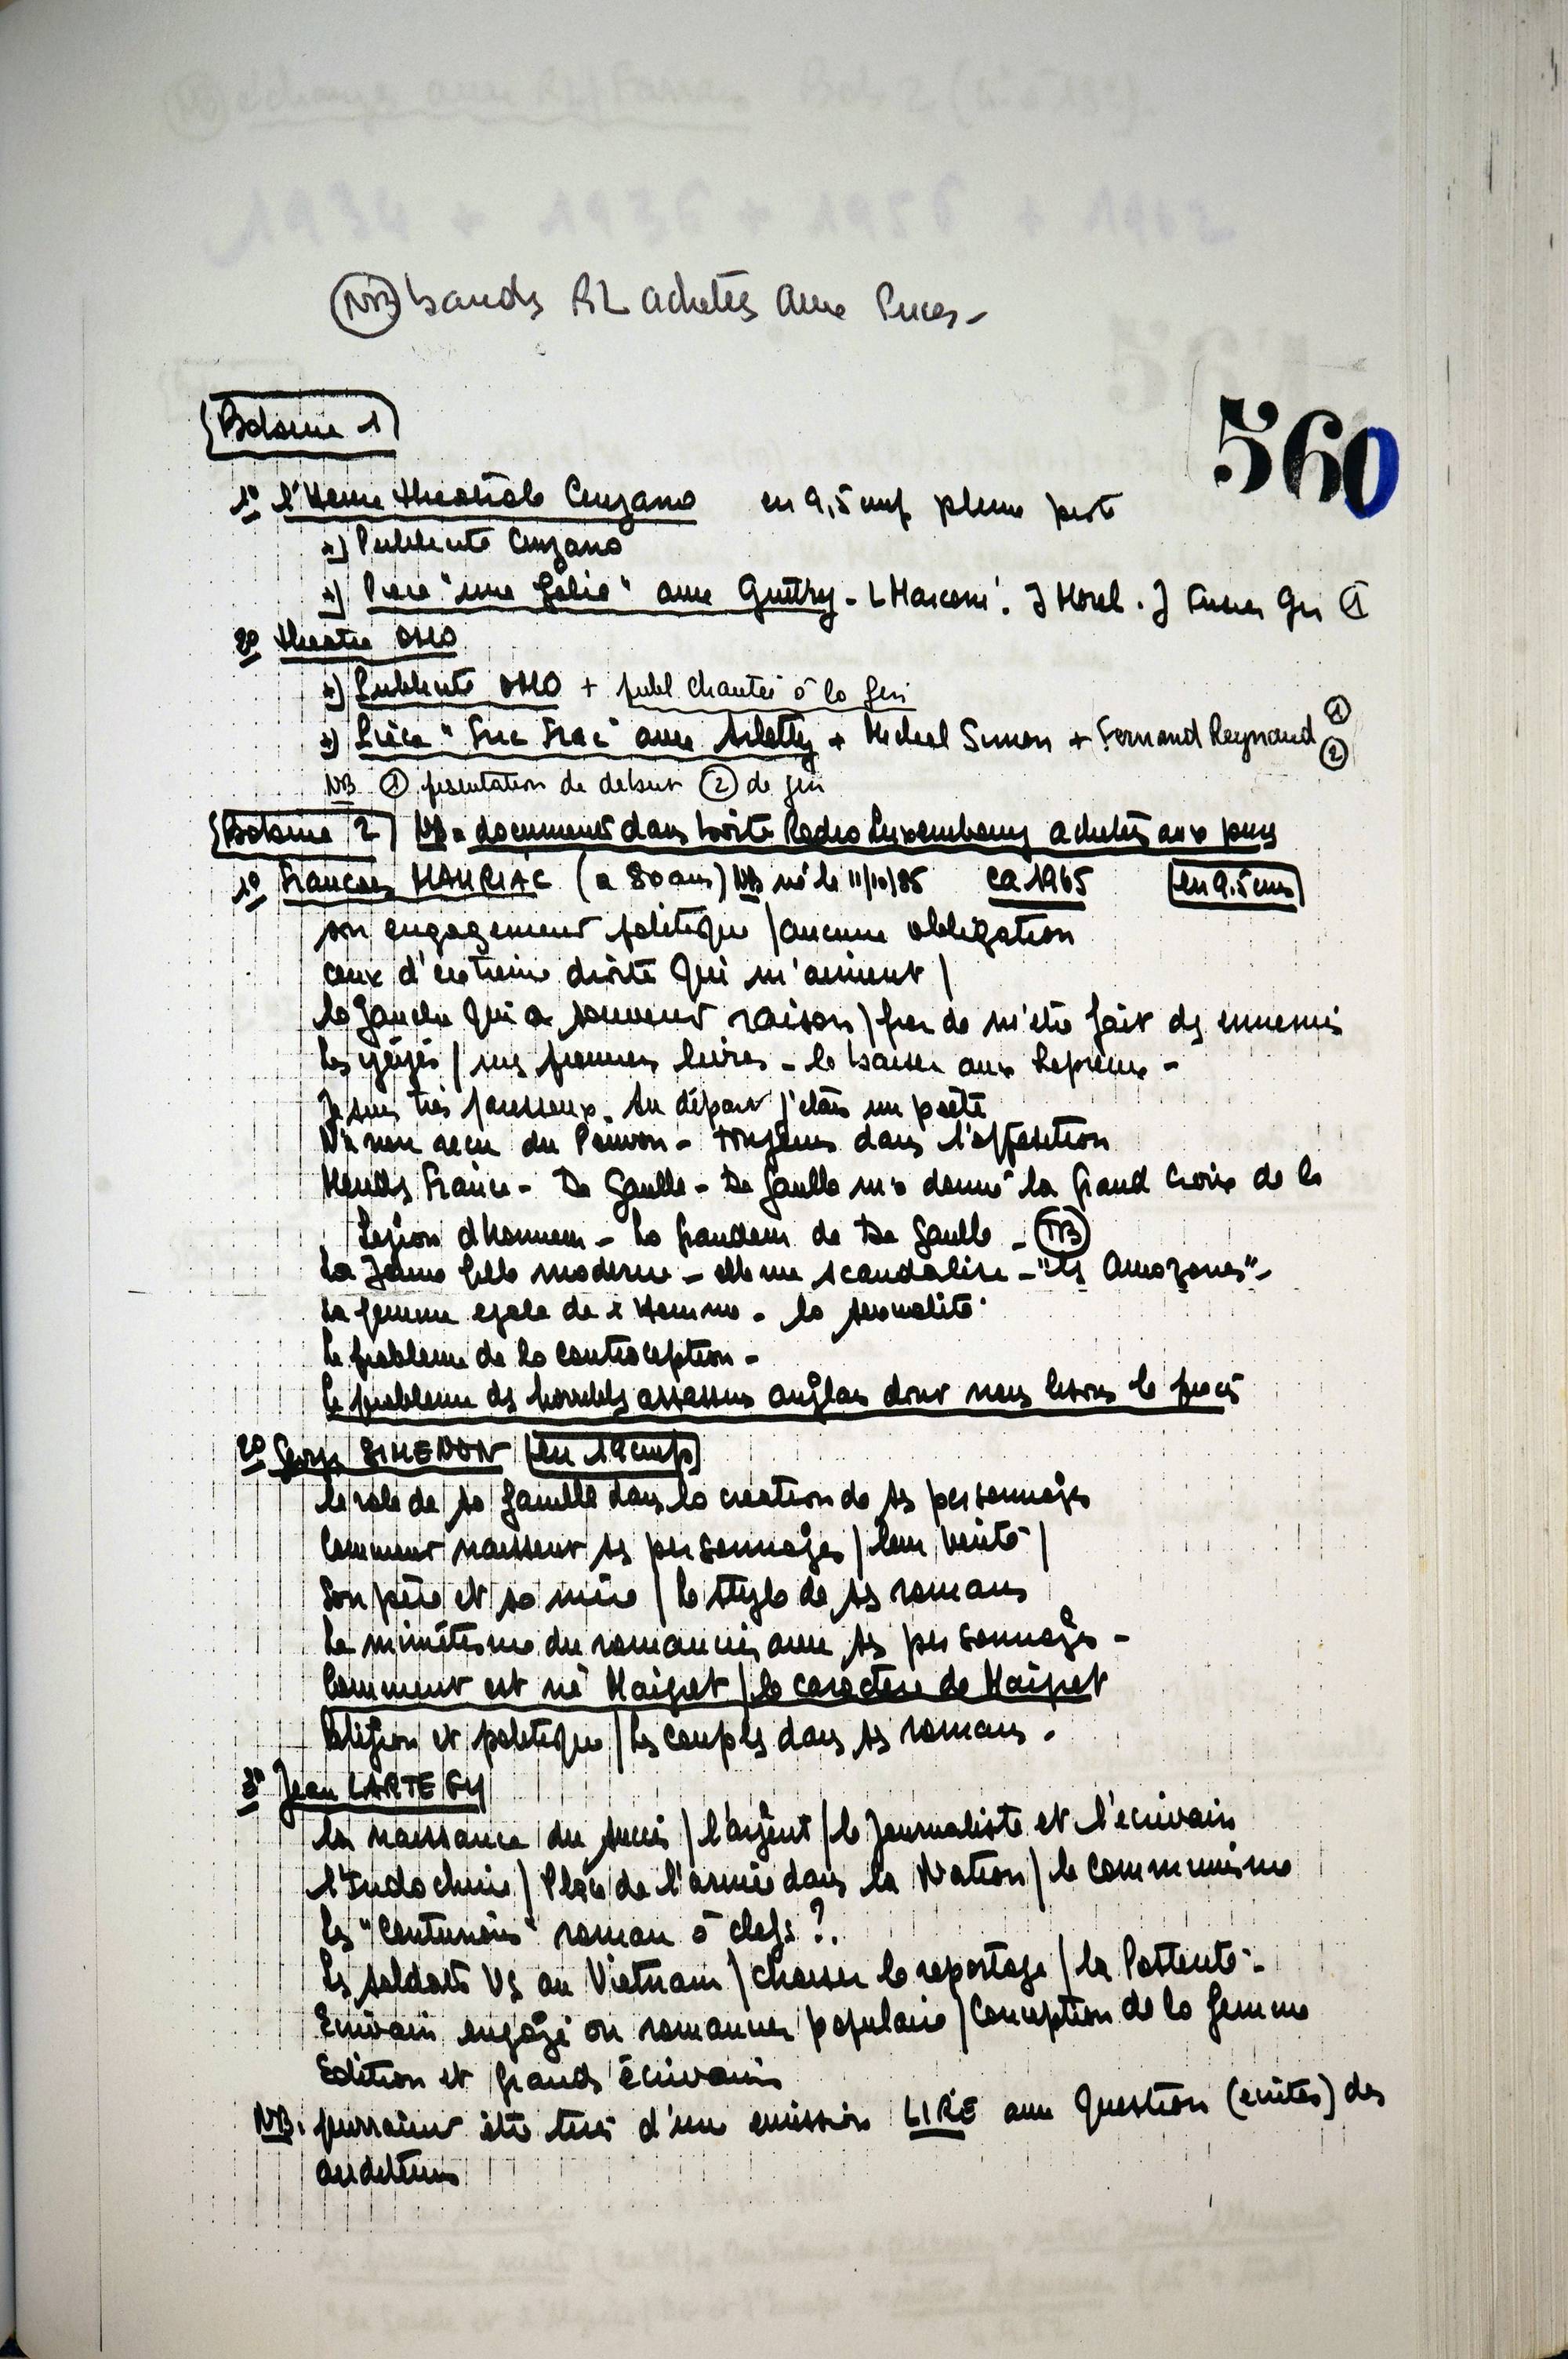 NB bandes RL achetées aux Puces -
560
Bobine 1
1º l'Heure théatrale Cinzano en 9,5 cm/s pleine piste
*) Publicité Cinzano
*) Piece "une folie" avec Guitry - L Marconi. J Morel. J 1
2º theatre OMO
*) Publicité OMO + publ chantée à la fin
*) Pièce "Fric Frac" avec Arletty + Michel Simon + Fernand Raynaud 1 2
NB 1 presentation de debut 2 de fin
Bobine 2 NB - document dans boite Radio Luxembourg achetés aux puces
1º Francois MAURIAC (a 80 ans) NB né le 11/10/85 ca 1965 en 9.5 cm/s
son engagement politique / aucune obligation
ceux d'extreme droite qui m'aiment /
la gauche qui a souvent raison / fier de m'etre fait des ennemis
les yéyés / mes premiers livres - le baiser aux Lepreux -
Je suis tres paresseux. Au départ j'étais un poete
N'a rien recu du Pouvoir - toujours dans l'opposition
Mendes France - De Gaulle - De Gaulle m'a donné la Grand Croix de la
Legion d'honneur - La grandeur de De Gaulle - TB
La Jeune fille moderne - elle me scandalise - "les Amazones" -
La femme egale de l'Homme - la sexualité
Le probleme de la contraception -
Le probleme des horribles assassins anglais dont nous lisons le procès
2º Georges SIMENON en 19 cm/s
le role de sa famille dans la creation de ses personnages
Comment naissent ses personnages / leur verité /
Son père et sa mère / le style de ses romans
Le mimétisme du romancier avec ses personnages -
Comment est né Maigret / le caractere de Maigret
Religion et politique / les couples dans ses romans.
3º Jean LARTEGUY
La naissance du succès / l'argent / le Journaliste et l'écrivain
l'Indochine / Place de l'armée dans la Nation / le communisme
les "Centurions" roman à clefs ?.
les soldats US au Vietnam / choisir le reportage / la Postérité -
Ecrivain engagé ou romancier populaire / Conception de la femme
Edition et grands écrivains
NB. pourraient être tirés d'une emission LIRE avec question (ecrites) des
auditeurs